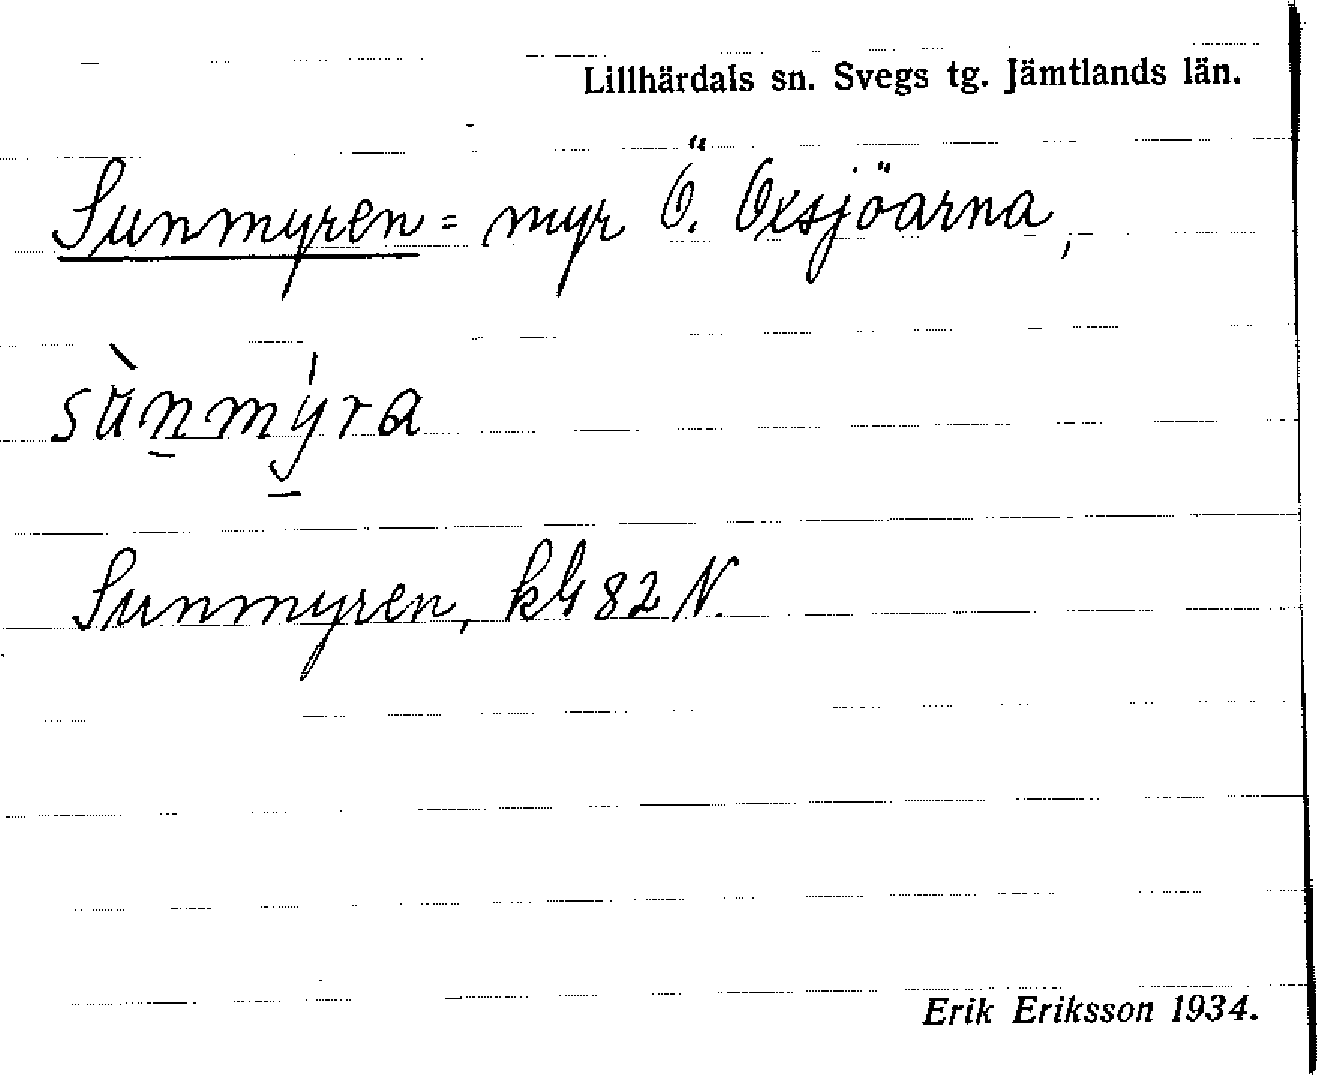 Lillhärdals sn. Svegs tg. Jämtlands län.
Sunmyren = myr Ö. Oxsjöarna,
sùn̠mý̠ra
Sunmyren, kbl 82 N.
Erik Eriksson 1934.